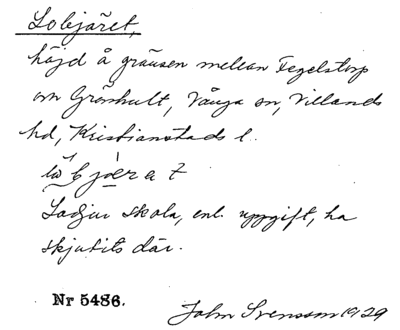 Lobjäret,
höjd å gränsen mellan Tegelstorp
om Grönhult, Vånga sn, Villands
hd, Kristianstads l.
skola, enl. uppgift, ha
skjutits där.
Nr 5486.
John Svensson 1929